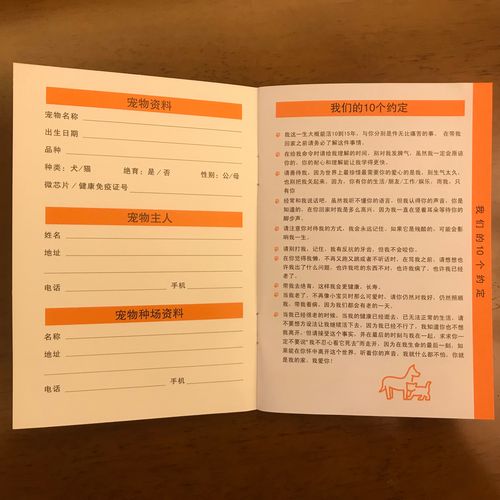 宠物资料
宠物名称
出生日期
品种
种类：犬/猫 绝育：是/否 性别：公/母
微芯片/健康免疫证号
宠物主人
姓名
地址
电话 手机
宠物种场资料
名称
地址
电话 手机
我们的10个约定
我这一生大概能活10到15年，与你分别是件无比痛苦的事。在带我
回家之前请务必了解这件事情。
在给我命令时请给我理解的时间，别对我发脾气，虽然我一定会原谅
你的，你的耐心和理解能让我学得更快。
请善待我，因为世界上最珍惜最需要你的爱心的是我，别生气太久，
也别把我关起来，因为，你有你的生活/朋友/工作/娱乐，而我，只
有你
经常和我说话吧，虽然我听不懂你的语言，但我认得你的声音，你是
知道的，在你回家时我是多么高兴，因为我一直在竖着耳朵等待你的
脚步声。
请注意你对待我的方式，我会永远记住，如果它是残酷的，可能会影
响我一生。
请别打我，记住，我有反抗的牙齿，但我不会咬你。
在你觉得我懒，不再又跑又跳或者不听话时，在骂我之前，请想想也
许我出了什么问题，也许我吃的东西不对，也许我病了，也许我已经
老了。
带我去绝育，这样我会更健康、长寿。
当我老了，不再像小宝贝时那么可爱时，请你仍然对我好，仍然照顾
我，带我看病，因为我们都会有老的一天。
当我已经很老的时候，当我的健康已经逝去，已无法正常的生活，请
不要想方设法让我继续活下去，因为我已经不行了，我知道你也不想
我离开，但请接受这个事实，并在最后的时刻与我在一起，求求你一
定不要说"我不忍心看它死去"而走开，因为在我生命的最后一刻，如
果能在你怀中离开这个世界，听着你的声音，我就什么都不怕，你就
是我的家，我爱你！
我们的10个约定